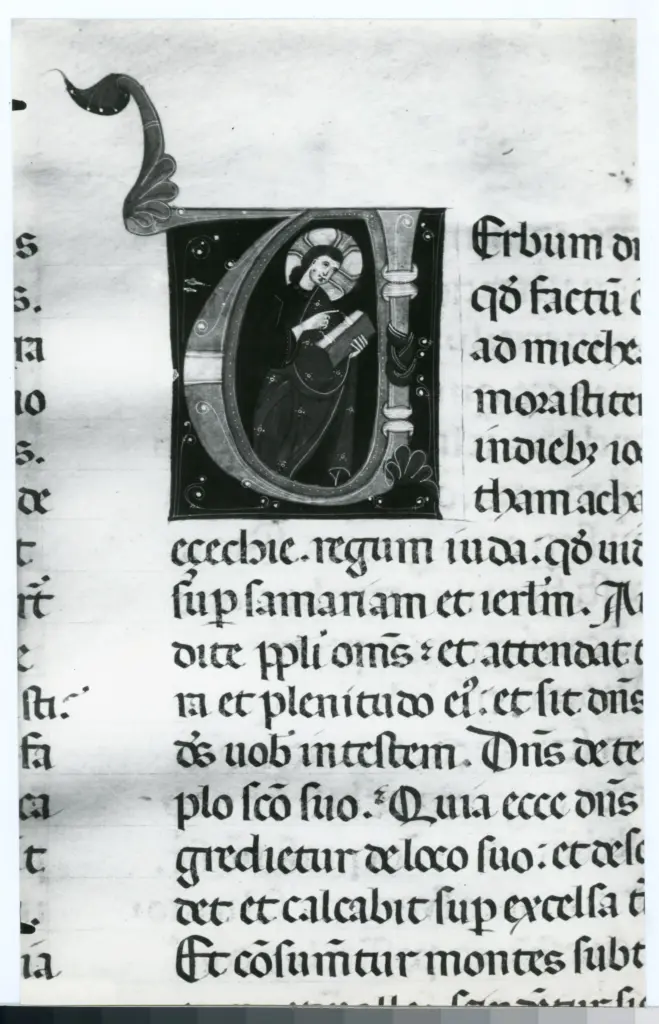 s
s.
ra
io
s.
de
t
rt̄
e
sti:
fa
ca
t
.
ia
UErbum di
qđ factū e
ad micche
morastite
indieb; io
tham acha
eçechie. regum iuda. qđ uid
sup samariam et ierlm̄. Au
dite ppli om̄s: et attendat t
ra et plenitudo ei⁹: et sit dn̄s
ds̄ uob intestem. Dn̄s de te
plo scō suo. Quia ecce dn̄s
gredietur de loco suo: et desc
det et calcabit sup excelsa t
Et cōsum̄tur montes subt